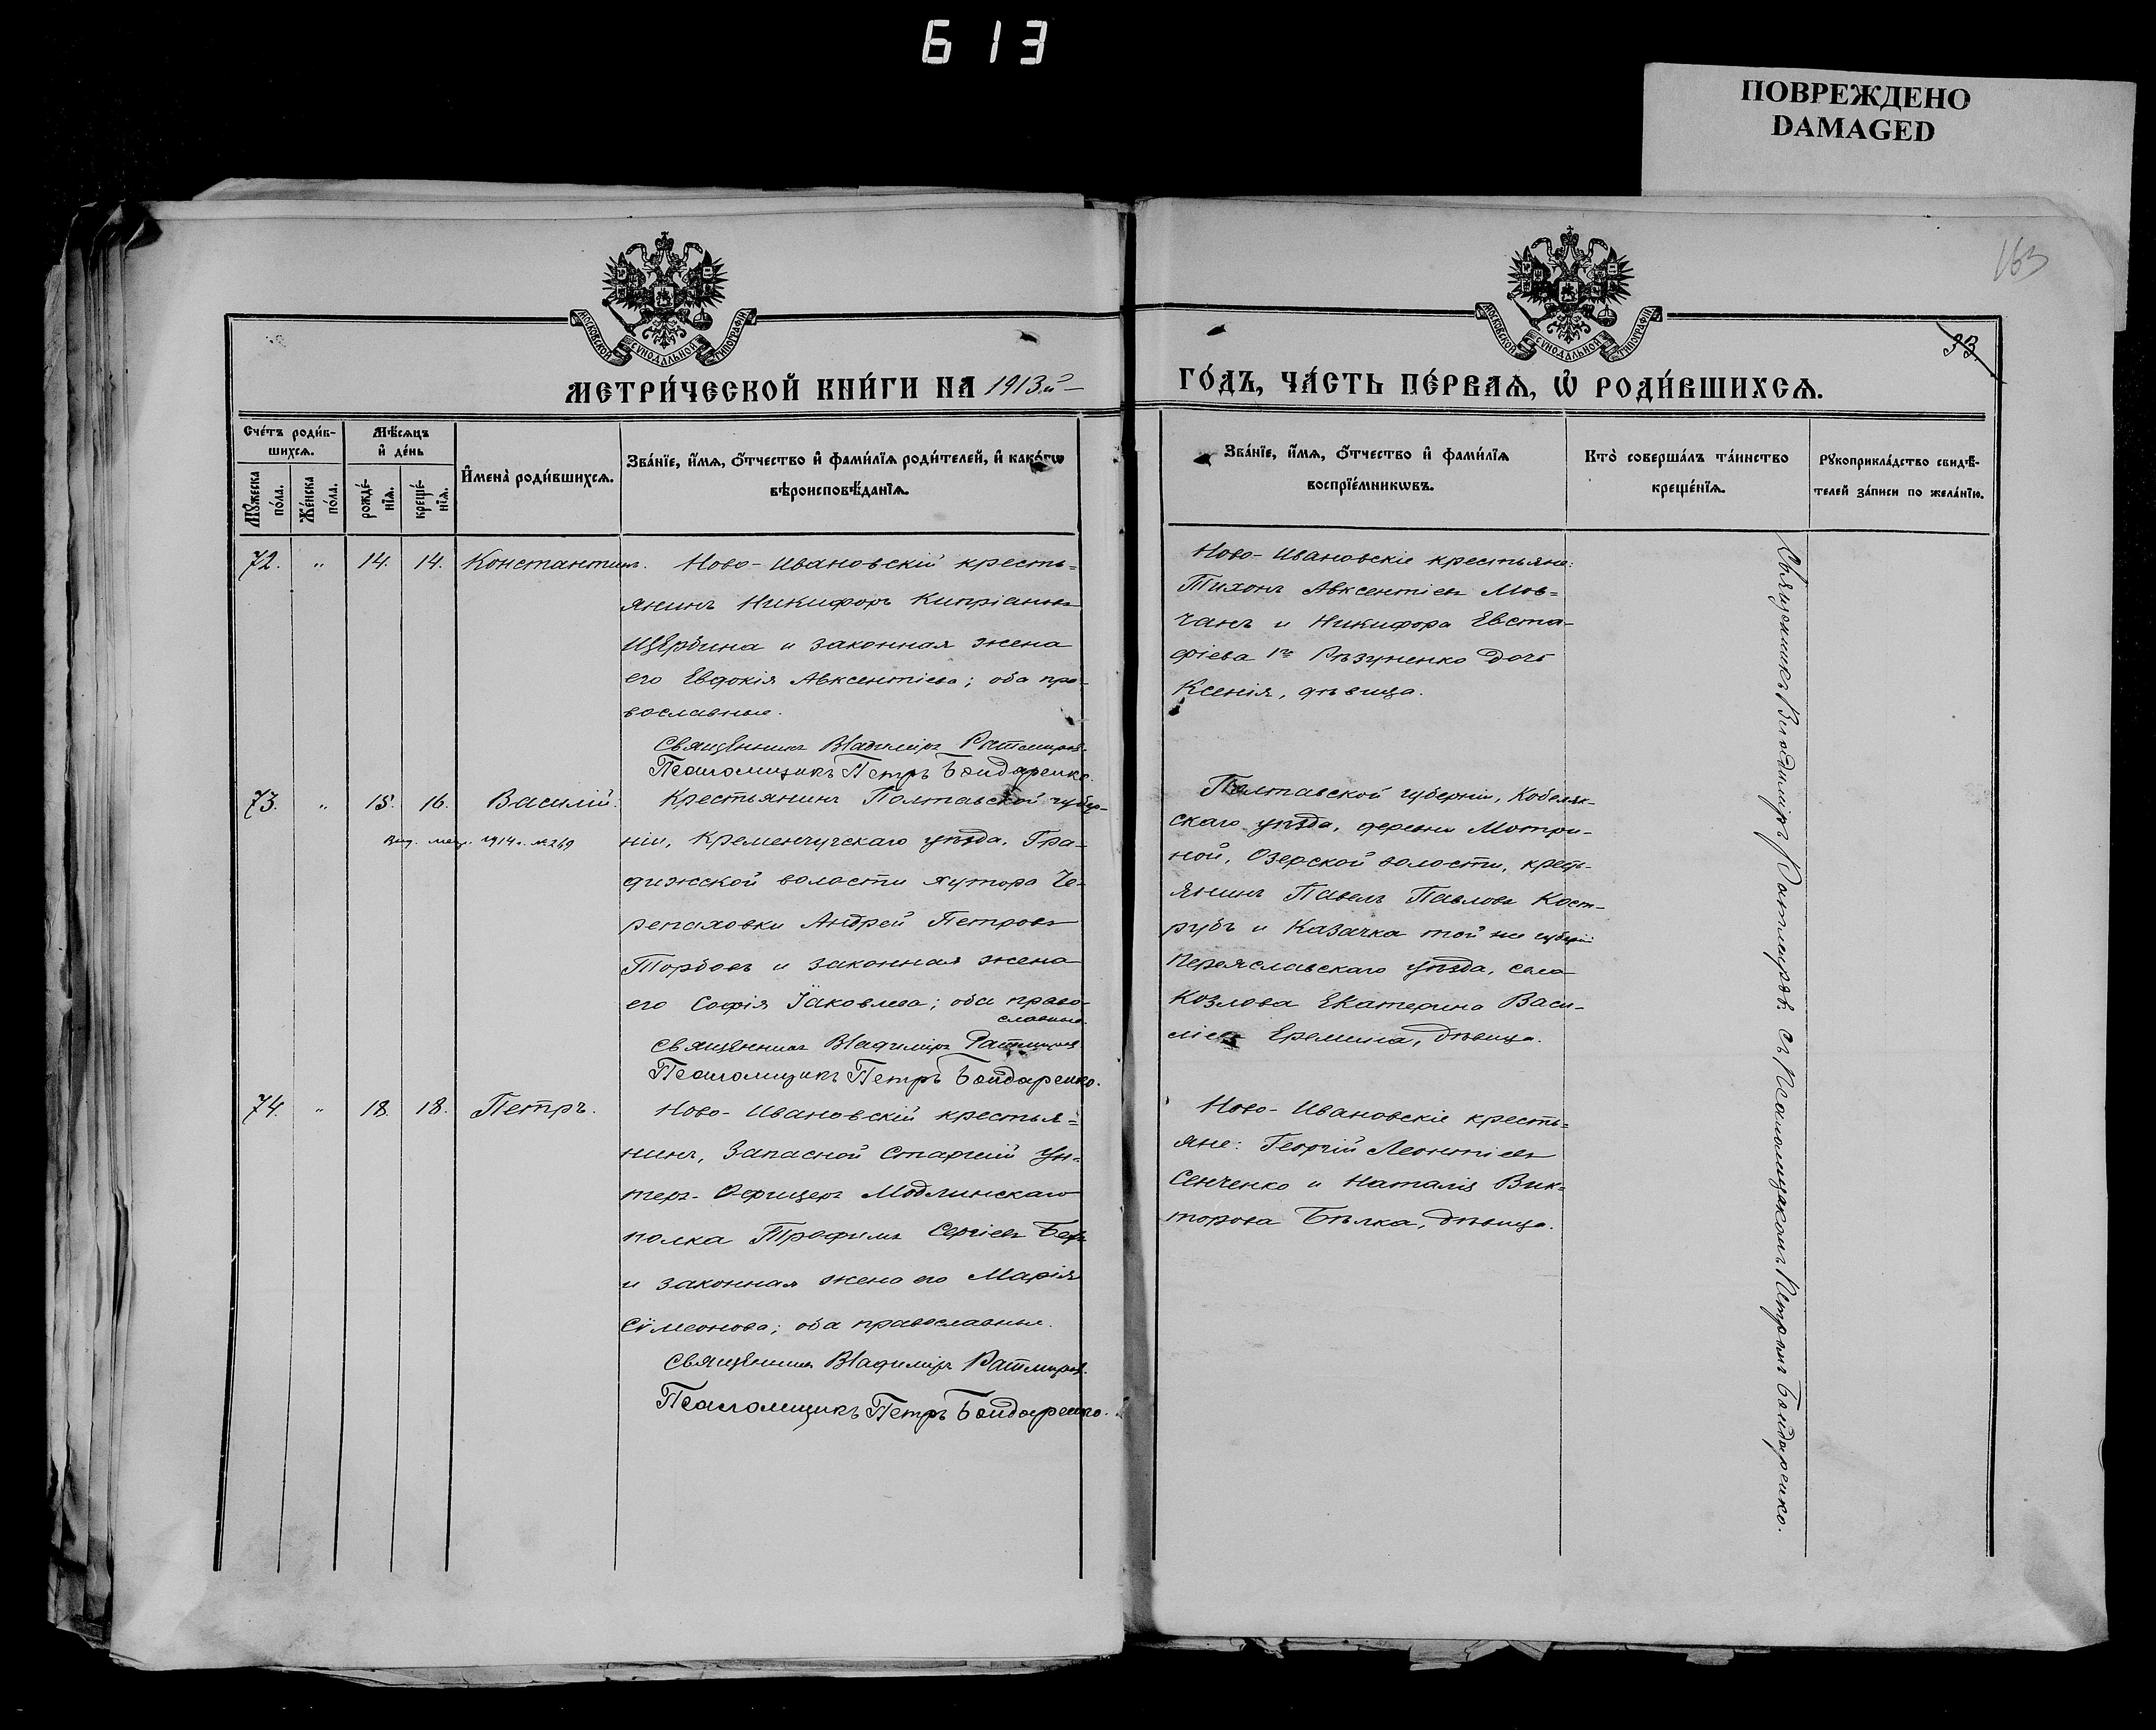 613
ПОВРЕЖДЕНО
DAMAGED
163
МОСКОВСКОЙ СѴНОДАЛЬНОЙ ТИПОГРАФІИ
МОСКОВСКОЙ СѴНОДАЛЬНОЙ ТИПОГРАФІИ
33.
МЕТРИ́ЧЕСКОЙ КНИ́ГИ НА 1913й
ГО́ДЪ, ЧА́СТЬ ПЕ́РВАѦ, Ѡ҆ РОДИ́ВШИХСѦ.
Сче́тъ роди́в-
шихсѧ.
Мѣ́сѧцъ
и҆ де́нь
Мꙋ́жеска
по́ла.
Же́нска
по́ла.
рожде́-
нїѧ.
креще́-
нїѧ.
И҆мена̀ роди́вшихсѧ.
Зва́нїе, и҆́мѧ, ѻ҆́тчество и҆ фами́лїѧ роди́телей, и҆ како́гѡ
вѣроисповѣ́данїѧ.
Зва́нїе, и҆́мѧ, ѻ҆́тчество и҆ фами́лїѧ
воспрїе́мникѡвъ.
Кто̀ соверша́лъ та́инство
креще́нїѧ.
Рꙋкоприкла́дство свидѣ́-
телей за́писи по жела́нїю.
72. " 14. 14. Константинъ. Ново-Ивановскій кресть=
янинъ Никифоръ Кипріановъ
Щербина и законная жена
его Евдокія Авксентіева; оба пра-
вославные.
Священникъ Владиміръ Ратмировъ.
Псаломщикъ Петръ Бондаренко.
Ново-Ивановскіе крестьяне:
Тихонъ Авксентіевъ Мов=
чанъ и Никифора Евста-
фіева Рѣзуненко дочь
Ксенія, дѣвица.
73. " 15. 16. Василій. Крестьянинъ Полтавской губер-
Выд. мет. 1914г. №269
ніи, Кременчугскаго уѣзда, Гра-
дижской волости хутора Че-
репаховки Андрей Петровъ
Торбовъ и законная жена
его Софія Іаковлева; оба право-
славные.
Священникъ Владиміръ Ратмировъ
Псаломщикъ Петръ Бондаренко.
Полтавской губерніи, Кобеляк-
скаго уѣзда, деревни Мотри-
ной, Озерской волости, кресть-
янинъ Павелъ Павловъ Кост-
рубъ и Казачка той же губерніи
Переяславскаго уѣзда, села
Козлова Екатерина Васи-
ліева Еремина, дѣвица.
74. " 18. 18. Петръ. Ново-Ивановскій крестья=
нинъ, Запасной Старшій Ун=
теръ-Офицеръ Модлинскаго
полка Трофимъ Сергіевъ
и законная жена его Марія
Сѵмеонова; оба православные.
Священникъ Владиміръ Ратмировъ.
Псаломщикъ Петръ Бондаренко.
Ново-Ивановскіе кресть=
яне: Георгій Леонтіевъ
Сенченко и Наталія Вик=
торова Бѣлка, дѣвица.
Священникъ Владиміръ Ратмировъ съ Псаломщикомъ Петромъ Бондаренко.